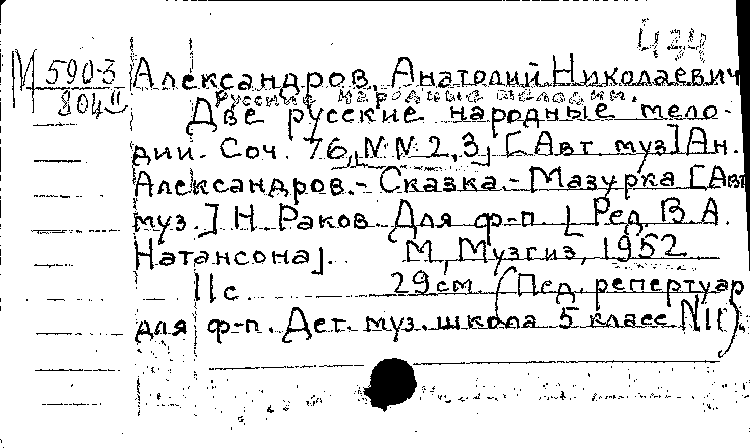 434
М 590-3
804 II
Александров, Анатолий Николаевич
Русские народные мелодии.
Две русские народные мело-
дии. Соч. 76, NN 2, 3, [Авт. муз] Ан.
Александров. - Сказка. - Мазурка [Авт
муз.] Н. Раков. Для ф-п. [Ред. В. А.
Натансона]. М., Музгиз, 1952
11 с 29 см. (Пед. репертуар
для ф-п. Дет. муз. школа 5 класс N 11).